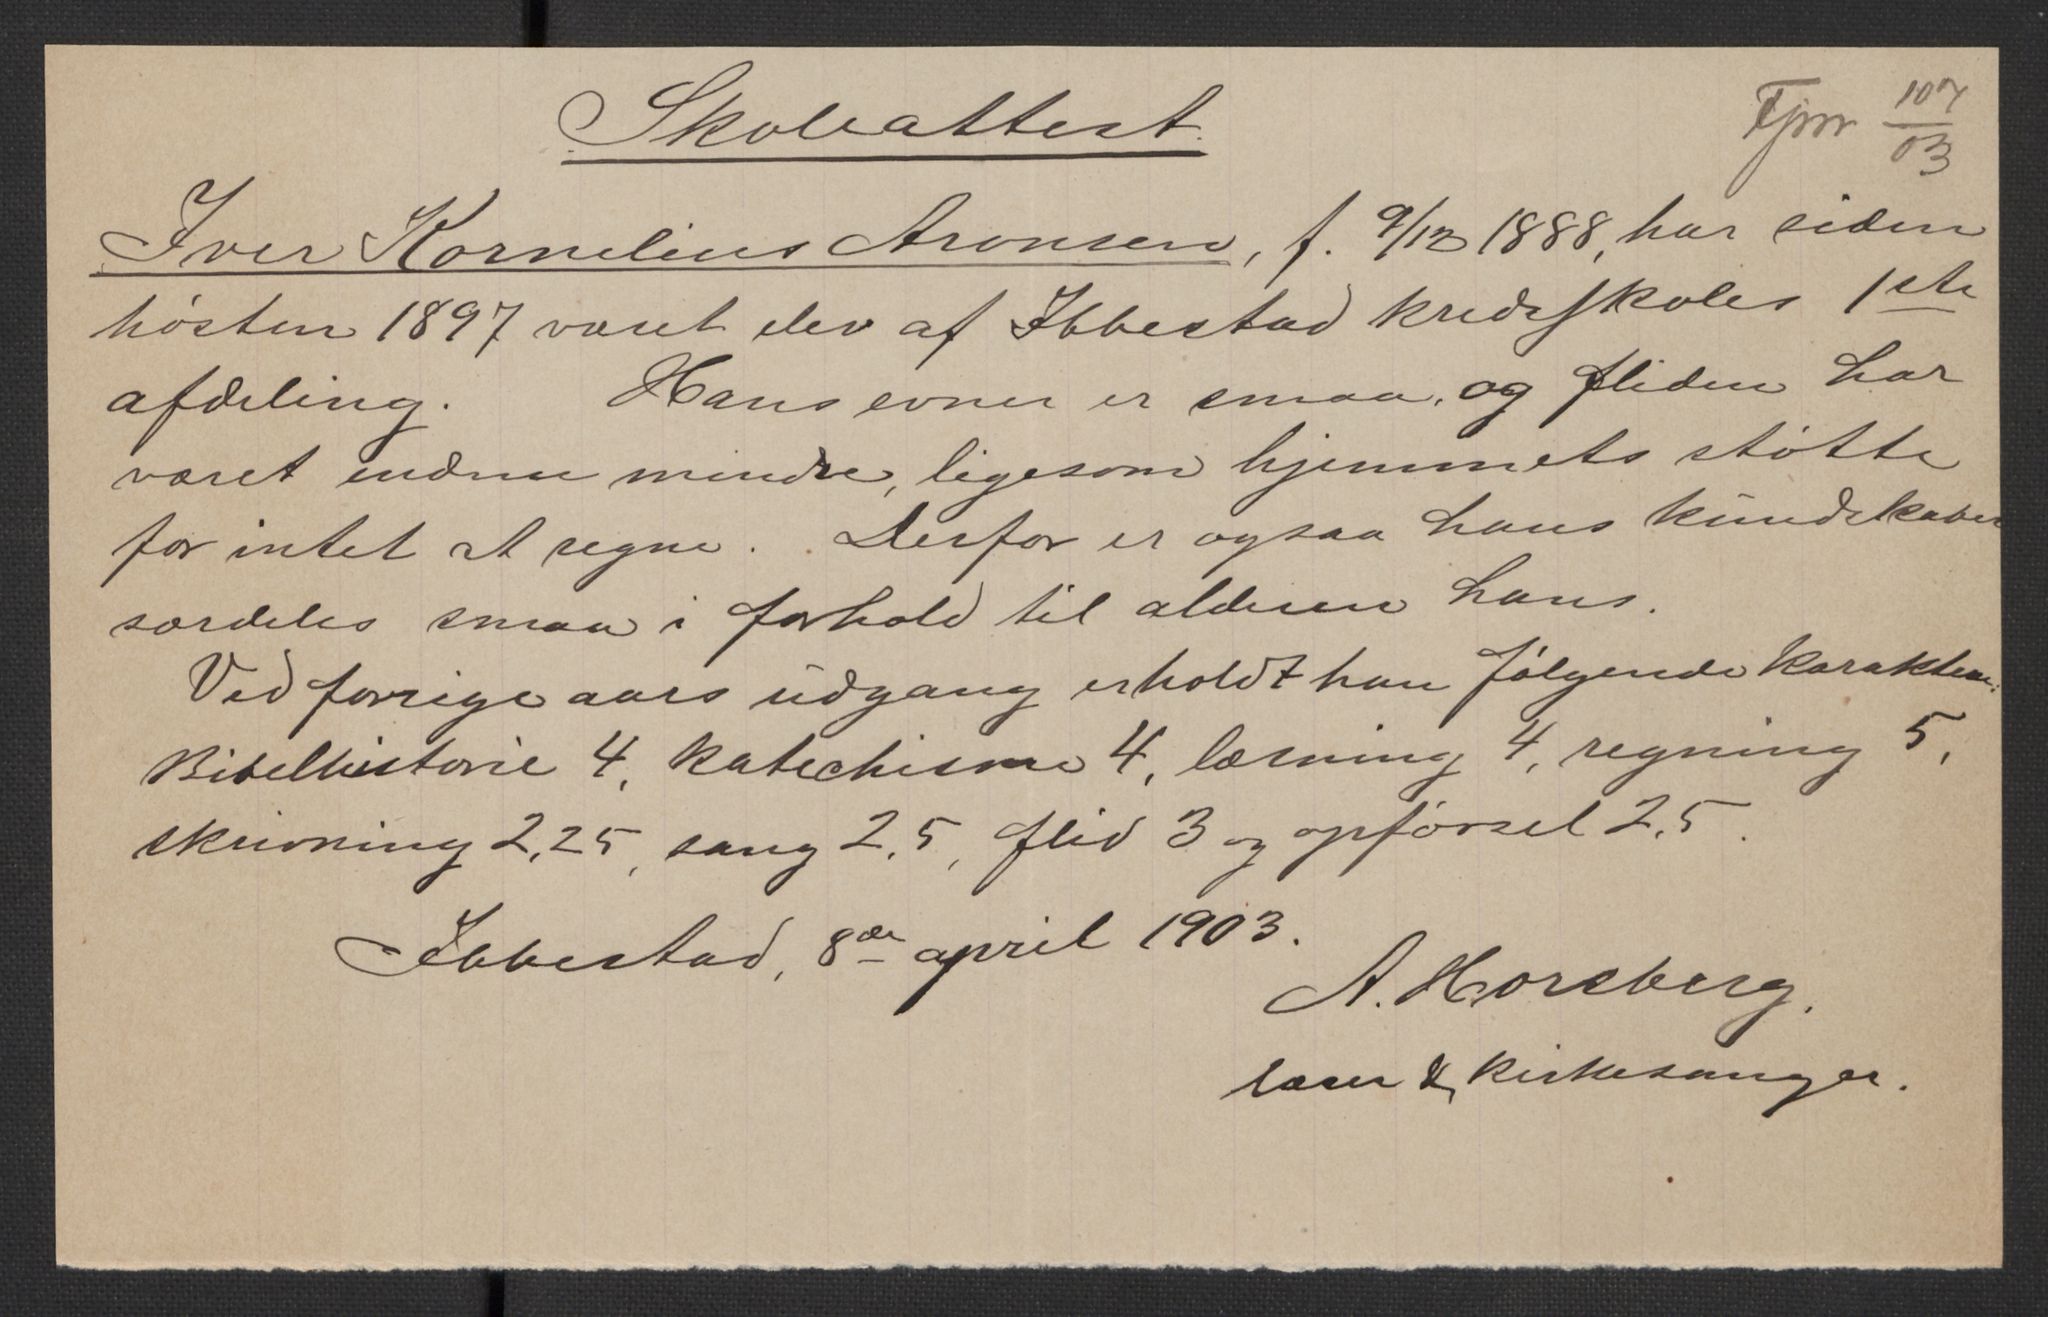 Skoleattest.
107
03
Iver Kornelius Aronsen, f. 9/12 1888, har siden
hösten 1897 været elev af Ibbestad kredsskoles 1ste
afdeling. Hans evner er smaa, og fliden har
været endnu mindre, ligesom hjemmets stötte
for intet at regne. Derfor er ogsaa hans kundskaber
særdeles smaa i forhold til alderen hans.
Ved forrige aars udgang erholdt han fölgende karakterer:
Bibelhistorie 4, katechisme 4, læsning 4, regning 5,
skrivning 2,25, sang 2,5, flid 3 og opförsel 2,5.
Ibbestad, 8de april 1903.
A. Horsberg.
lærer & kirkesanger.